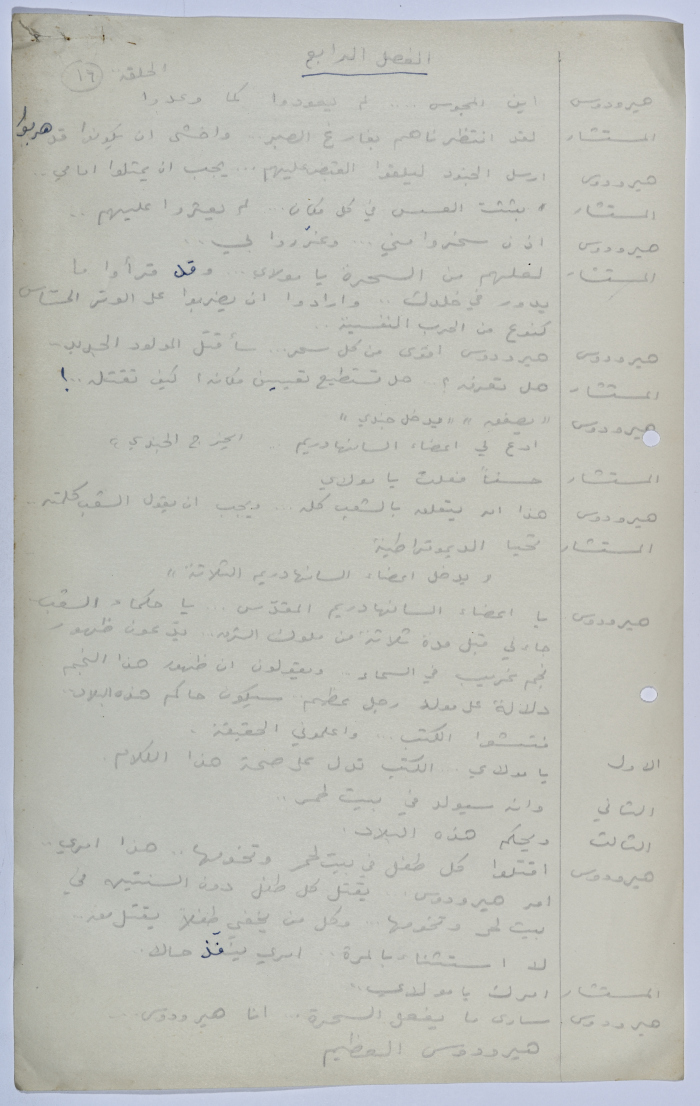 الفصل الرابع
الحلقة ١٦
هيرودوس اين المجوس .... لم يعودوا كما وعدوا
المستشار لقد انتظرناهم بفارغ الصبر .. واخشى ان يكونوا قد هربوا
هيرودوس ارسل الجنود ليلقوا القبض عليهم ... يجب ان يمثلوا امامي ..
المستشار بثثت العسس في كل مكان .. لم يعثروا عليهم ..
هيرودوس اذن سخروا مني ... وغرروا بي ..
المستشار لعلهم من السحرة يا مولاي ... وقد قرأوا ما
يدور في خلدك .. وارادوا ان يضربوا على الوتر الحساس
كنوع من الحرب النفسية ..
هيرودوس هيرودوس اقوى من كل سحر ... سأقتل المولود الجديد ..
المستشار هل تعرفه ؟ .. هل تستطيع تعيين مكانه ! كيف تقتله ..!
هيرودوس " يصفق " " يدخل جندي "
ادع لي اعضاء السانهادريم ... " يخرج الجندي "
المستشار حسناً فعلت يا مولاي
هيرودوس هذا امر يتعلق بالشعب كله ... ويجب ان يقول الشعب كلمته ..
المستشار تحيا الديموقراطية
" يدخل اعضاء السانهادريم الثلاثة "
هيرودوس يا اعضاء السانهادريم المقدس ... يا حكماء الشعب
جاءني قبل مدة ثلاثة من ملوك الشرق .. يدّعون ظهور
نجم غريب في السماء .. ويقولون ان ظهور هذا النجم
دلالة على مولد رجل عظيم .. سيكون حاكم هذه البلاد ..
فتشوا الكتب ... واعلموني الحقيقة .
الاول يا مولاي .. الكتب تدل على صحة هذا الكلام .
الثاني وانه سيولد في بيت لحم ..
الثالث ويحكم هذه البلاد .
هيرودوس اقتلوا كل طفل في بيت لحم وتخومها .. هذا امري ..
امر هيرودوس ... يقتل كل طفل دون السنتين في
بيت لحم وتخومها ... وكل من يخفي طفلا يقتل معه ..
لا استثناء بالمرة .. امري ينفّذ حالا .
المستشار امرك يا مولاي ..
هيرودوس سأرى ما يفعل السحرة ... انا هيرودوس ...
هيرودوس العظيم